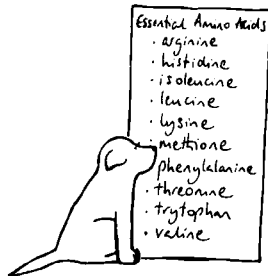 Essential Amino Acids
• arginine
• histidine
• isoleucine
• leucine
• lysine
• methione
phenylalanine
• threonine
• trytophan
• valine